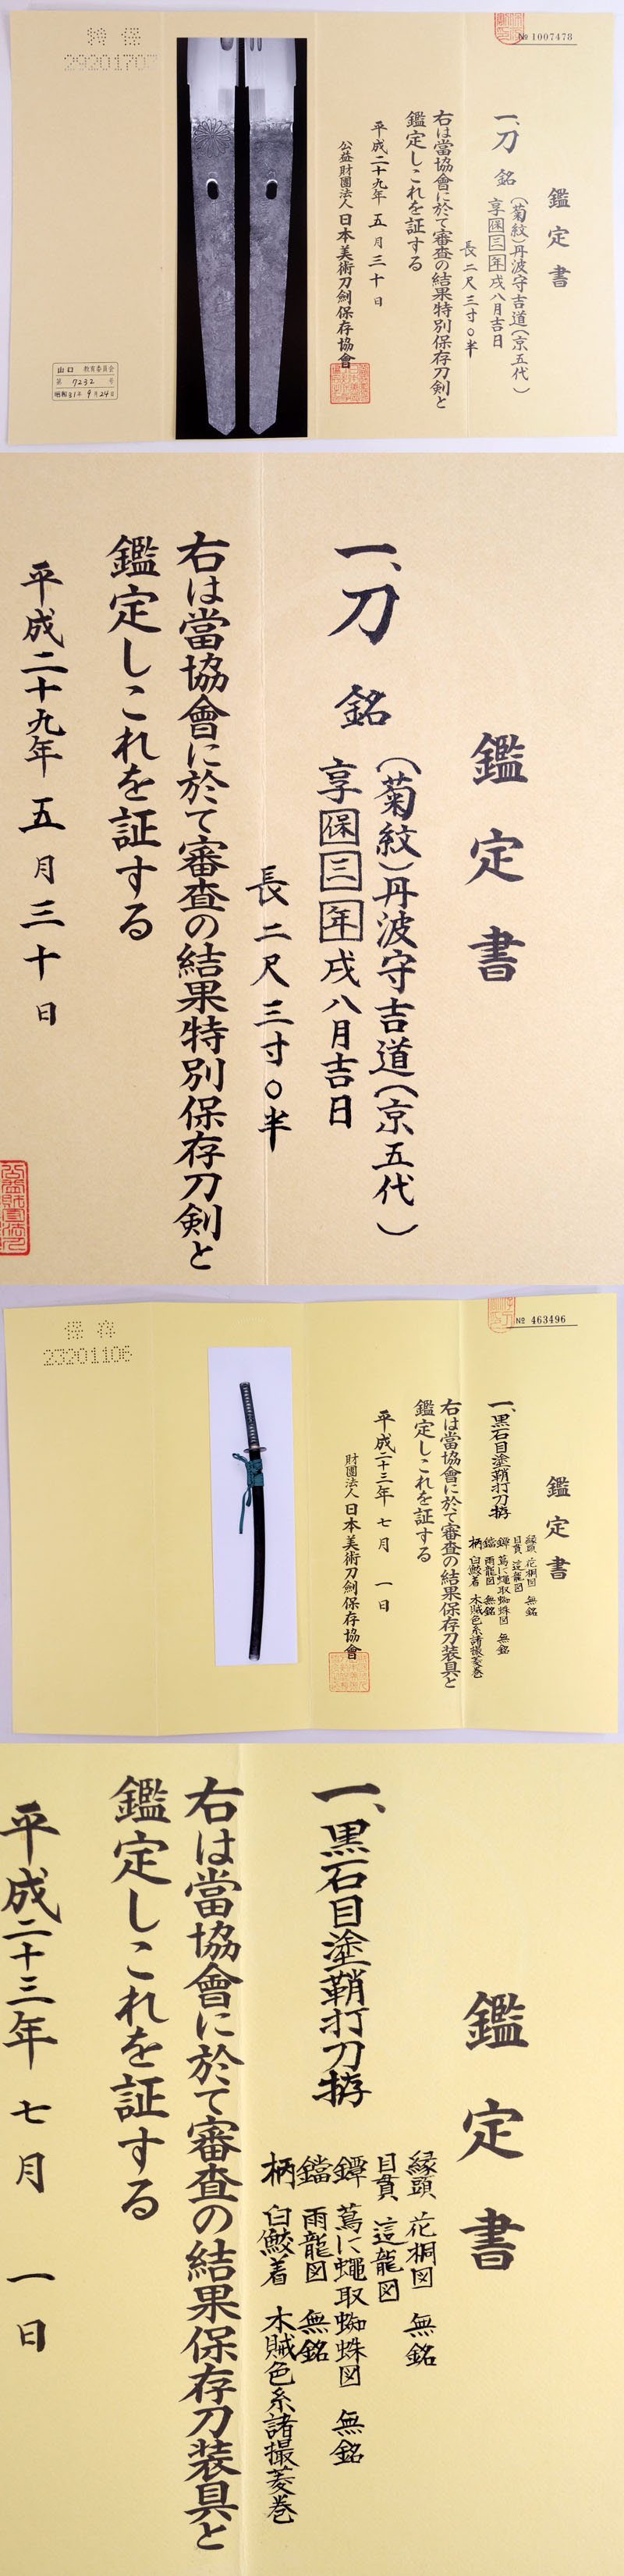 № 1007478
鑑定書
一、刀 銘
(菊紋)丹波守吉道(京五代)
享保三年戌八月吉日
長二尺三寸〇半
右は當協會に於て審査の結果特別保存刀剣と
鑑定しこれを証する
平成二十九年 五月三十日
公益財團法人 日本美術刀劍保存協會
特保
山口 教育委員会
第 7232 号
昭和31年 9月24日
鑑定書
一、刀 銘
(菊紋)丹波守吉道(京五代)
享保三年戌八月吉日
長二尺三寸〇半
右は當協會に於て審査の結果特別保存刀剣と
鑑定しこれを証する
平成二十九年 五月三十日
№ 463496
鑑定書
一、黒石目塗鞘打刀拵
縁頭 花桐図 無銘
目貫 這龍図
鐔 蔦に蠅取蜘蛛図 無銘
鐺 雨龍図 無銘
柄 白鮫着 木賊色糸諸撮菱巻
右は當協會に於て審査の結果保存刀装具と
鑑定しこれを証する
平成二十三年 七月 一日
財團法人 日本美術刀劍保存協會
保存
23201106
鑑定書
一、黒石目塗鞘打刀拵
縁頭 花桐図 無銘
目貫 這龍図
鐔 蔦に蠅取蜘蛛図 無銘
鐺 雨龍図 無銘
柄 白鮫着 木賊色糸諸撮菱巻
右は當協會に於て審査の結果保存刀装具と
鑑定しこれを証する
平成二十三年 七月 一日